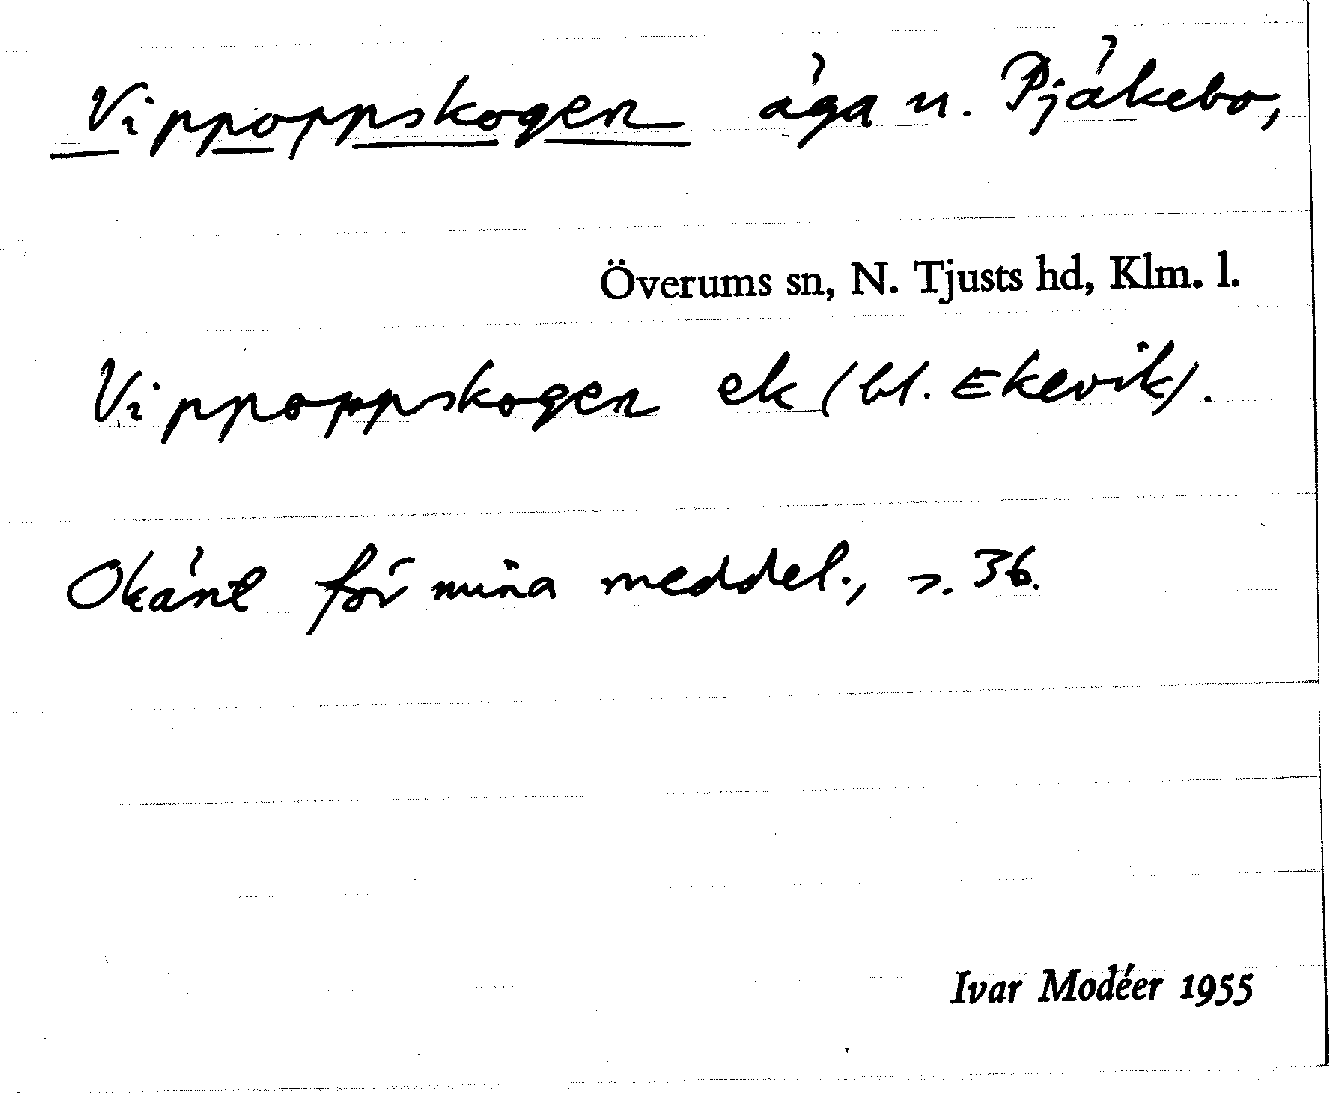 Vippoppskogen äga u. Pjäkebo,
Överums sn, N. Tjusts hd, Klm. l.
Vippoppskogen ek (bl. Ekevik).
Okänt för mina meddel., s. 36.
Ivar Modéer 1955